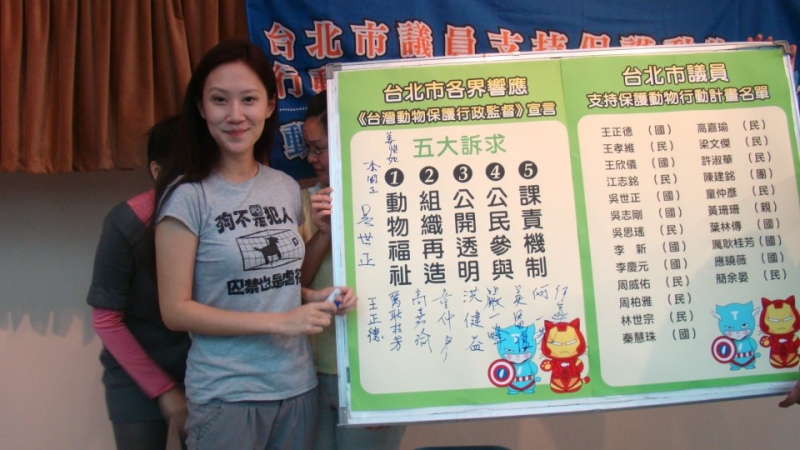 台北市議員支持保護動物
行動
動
台北市各界響應
《台灣動物保護行政監督》宣言
五大訴求
1 動物福祉
2 組織再造
3 公開透明
4 公民參與
5 課責機制
吳世正
王正德
厲耿桂芳
高嘉瑜
童仲彥
洪健益
台北市議員
支持保護動物行動計畫名單
王正德 (國)
王孝維 (民)
王欣儀 (國)
江志銘 (民)
吳世正 (國)
吳志剛 (國)
吳思瑤 (民)
李 新 (國)
李慶元 (國)
周威佑 (民)
周柏雅 (民)
林世宗 (民)
秦慧珠 (國)
高嘉瑜 (民)
梁文傑 (民)
許淑華 (民)
陳建銘 (團)
童仲彥 (民)
黃珊珊 (親)
葉林傳 (國)
厲耿桂芳 (國)
應曉薇 (國)
簡余晏 (民)
狗不是犯人
囚禁也是虐待